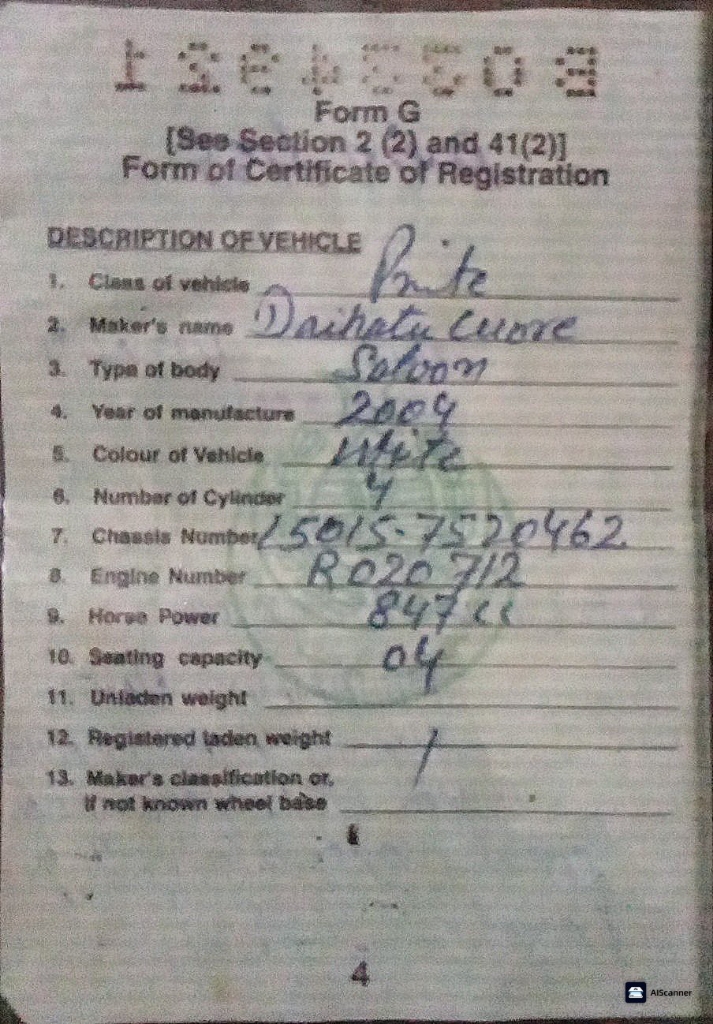 Form G
[See Section 2 (2) and 41(2)]
Form of Certificate of Registration
DESCRIPTION OF VEHICLE
1. Class of vehicle
2. Maker's name Daihatu Cuore
3. Type of body Saloon
4. Year of manufacture 2004
5. Colour of Vehicle White
6. Number of Cylinder 4
7. Chassis Number L501S-7520462
8. Engine Number R020712
9. Horse Power 847 cc
10. Seating capacity 04
11. Unladen weight
12. Registered laden weight
13. Maker's classification or,
if not known wheel base
4
AIScanner